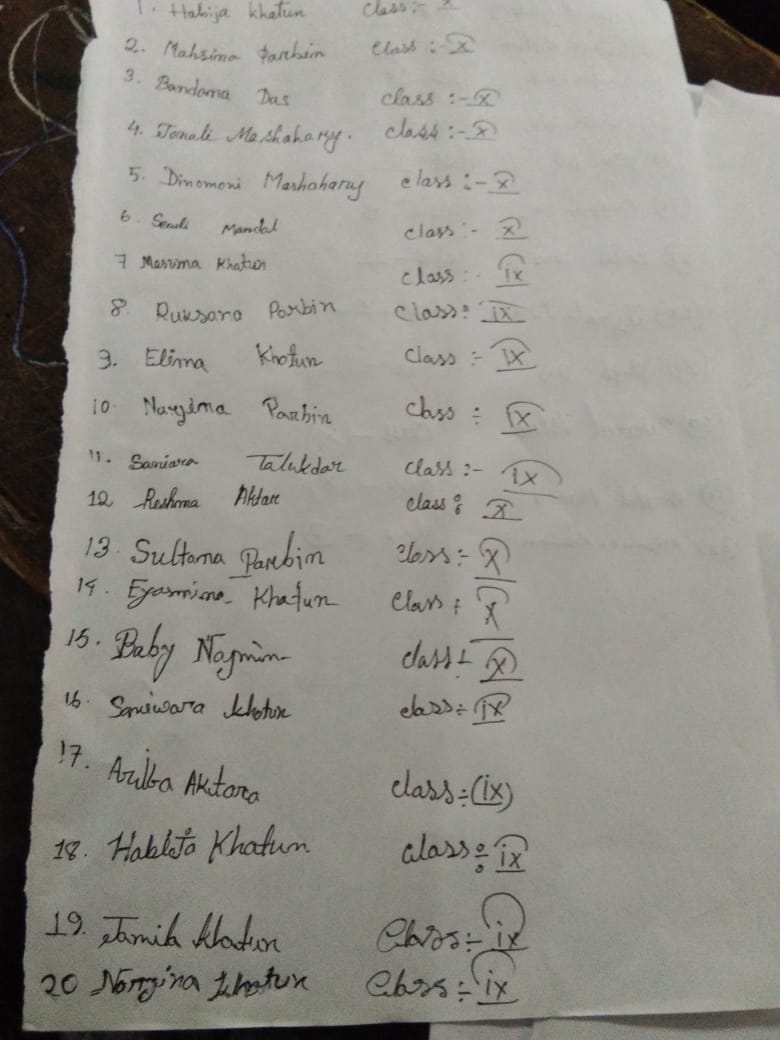 1. Habija Khatun Class :- X
2. Mahsima Parbin Class :- X
3. Bandana Das class :- X
4. Jonali Mashahary. class :- X
5. Dinomoni Mashahary class :- X
6. Seuli Mandal class :- X
7 Masuma Khatun class :- ix
8. Ruksara Porbin class: ix
9. Elima Khotun class :- ix
10. Nargima Parbin class ÷ ix
11. Saniara Talukdar class :- ix
12 Reshma Aktar class : X
13. Sultana Parbin class :- X
14. Eyasmina Khatun class : X
15. Baby Najmin class ÷ X
16. Saniwara Khotun class ÷ ix
17. Ariba Aktara class ÷ (ix)
18. Khatun class ÷ ix
19. Jamila Khatun Class ÷ ix
20 Norgina Khotun Class ÷ ix